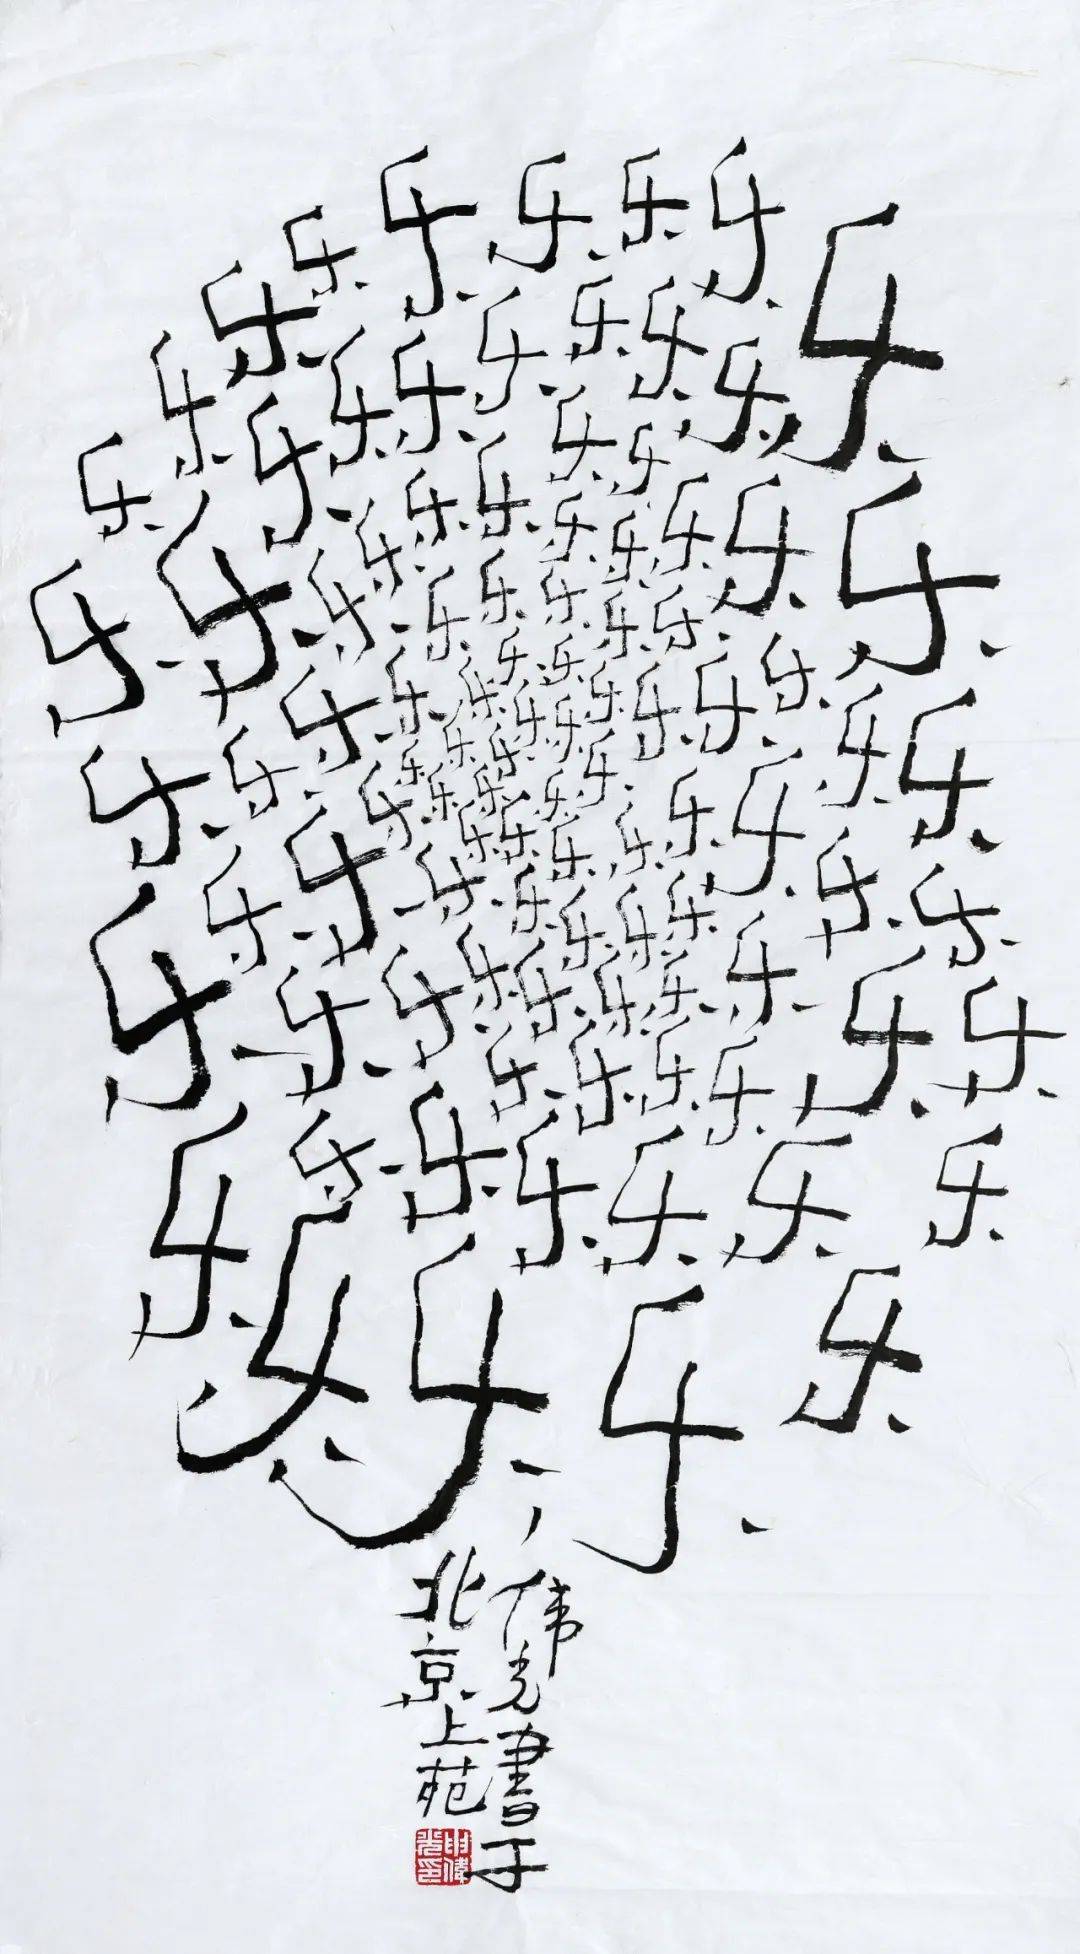 乐乐乐乐乐
乐
乐乐乐乐
乐乐乐乐
乐乐乐
乐乐乐
乐乐乐乐乐
乐乐乐乐乐
乐乐乐
乐乐乐
乐乐乐乐乐乐乐
乐乐乐乐
乐乐乐乐乐乐
乐乐乐乐乐乐
乐乐乐乐乐乐
乐乐乐乐
乐乐乐
乐乐乐乐乐乐乐乐乐乐
乐乐乐乐
乐乐乐乐乐乐乐
乐乐乐乐
伟光書于
北京上苑
申偉光印